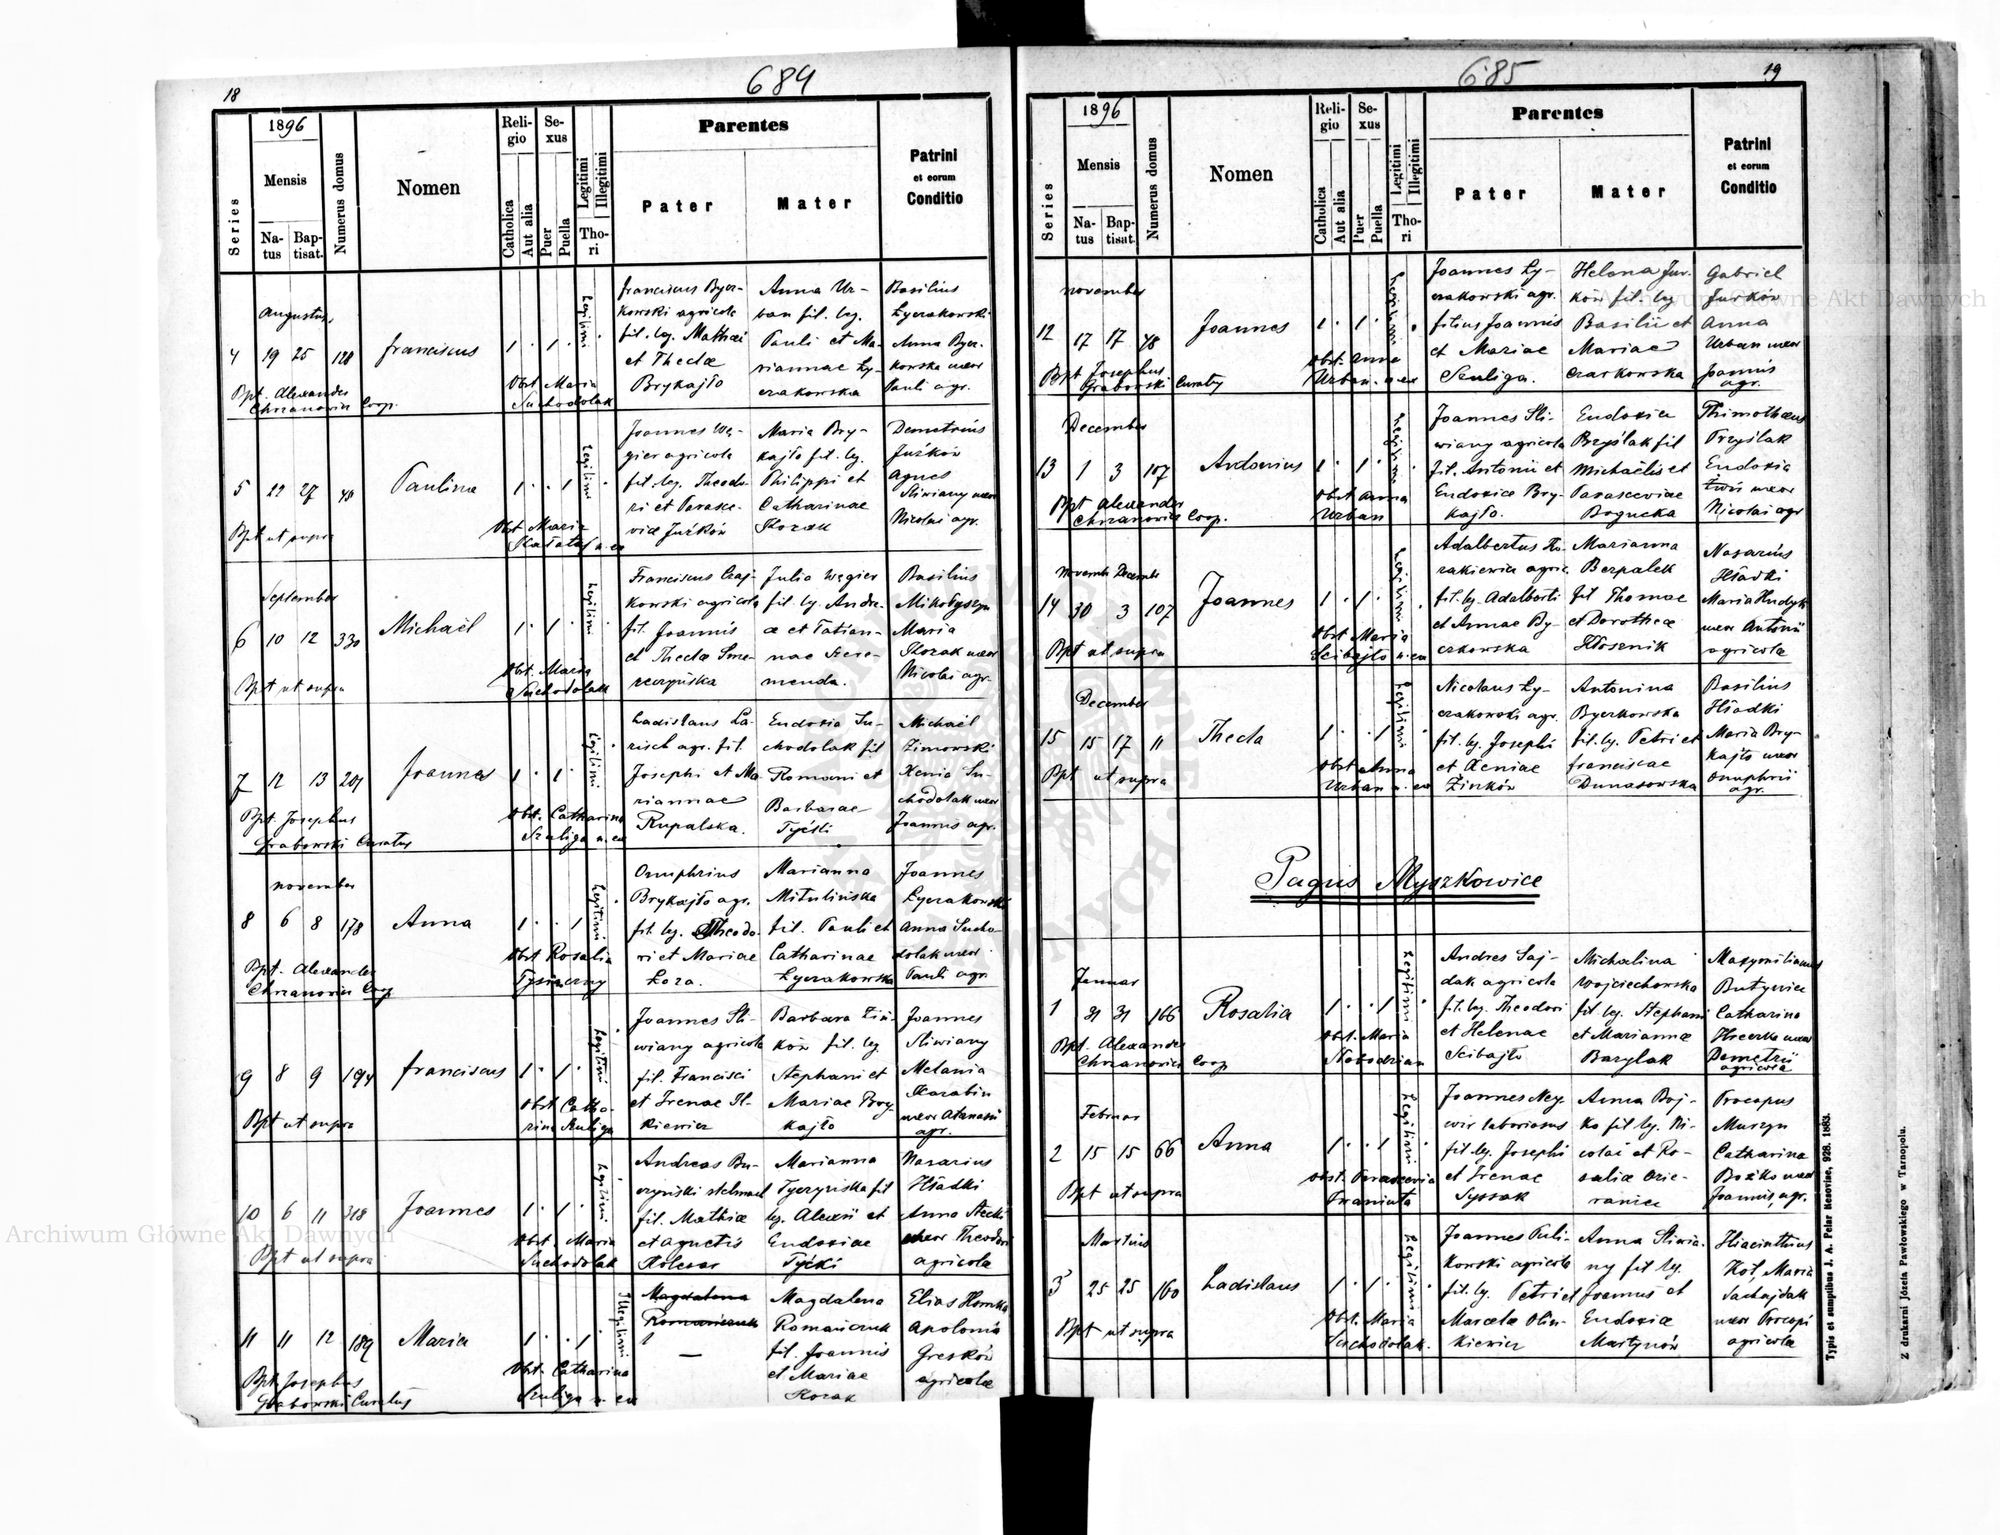 18
684
1896
Mensis
Natus
Baptisat.
Series
Numerus domus
Nomen
Religio
Catholica
Aut alia
Sexus
Puer
Puella
Legitimi
Illegitimi
Thori
Parentes
Pater
Mater
Patrini
et eorum
Conditio
Augustus
4 19 25 128 Franciscus 1 1 Legitimi
Franciscus Bycz-
kowski agricola
fil. leg. Mathaei
et Theclae
Brykajło
Anna Ur-
ban fil. leg.
Pauli et Ma-
riannae Ły-
czakowska
Basilius
Łyczakowski
Anna Bycz-
kowska uxor
Pauli agr.
Bpt. Alexander
Chrzanowicz Coop.
Obst. Maria
Suchodolak
5 22 27 Paulina 1 1 Legitimi
Joannes Wę-
gier agricola
fil. leg. Theodo-
ri et Parasce-
viae Juźków
Maria Bry-
kajło fil. leg.
Philippi et
Catharinae
Kozak
Demetrius
Juźków
Agnes
Śliwiany uxor
Nicolai agr.
Bpt ut supra
Obst. Maria
September
6 10 12 330 Michaël 1 1 Legitimi
Franciscus Czaj-
kowski agricola
fil. Joannis
et Theclae Sme-
reczyńska
Julia Węgier
fil. leg. Andre-
ae et Tatian-
nae Szere-
menda.
Basilius
Mikołyszyn
Maria
Kozak uxor
Nicolai agr.
Bpt ut supra
Obst. Maria
Suchodolak
7 12 13 201 Joannes 1 1 Legitimi
Ladislaus La-
risch agr. fil.
Josephi et Ma-
riannae
Rupalska.
Eudoxia Su-
chodolak fil
Romani et
Barbarae
Tyćki
Michaël
Zimowski
Xenia Su-
chodolak uxor
Joannis agr.
Bpt. Josephus
Grabowski Curatus
Obst. Catharina
Szuliga n. ex
November
8 6 8 178 Anna 1 1 Legitimi
Onuphrius
Brykajło agr.
fil. leg. Theodo-
ri et Mariae
Łoza.
Marianna
Mitulińska
fil. Pauli et
Catharinae
Łyczakowska
Joannes
Łyczakowski
Anna Sucho-
dolak uxor
Pauli agr.
Bpt. Alexander
Chrzanowicz Coop
Obst. Rosalia
Tysiaczny
9 8 9 194 Franciscus 1 1 Legitimi
Joannes Śli-
wiany agricola
fil. Francisci
et Irenae Il-
kiewicz
Barbara Ziń-
ków fil. leg.
Stephani et
Mariae Bry-
kajło
Joannes
Śliwiany
Melania
Karabin
uxor Atanasii
agr.
Bpt ut supra
Obst Catha-
rina Szuliga
10 6 11 318 Joannes 1 1 Legitimi
Andreas Bu-
czyński stelmach
fil. Mathiae
et Agnetis
Kolesar
Marianna
Tyczyńska fil
leg. Alexii et
Eudoxiae
Tyćki
Nazarius
Hładki
Anna Stecki
uxor Theodori
agricola
Bpt ut supra
Obst. Maria
Suchodolak
11 11 12 189 Maria 1 1 Illegitimi
Magdalena
Romańczuk
—
Magdalena
Romańczuk
fil. Joannis
et Mariae
Kozak
Elias Homka
Apolonia
Greśków
agricolae
Bpt. Josephus
Grabowski Curatus
Obst. Catharina
Szuliga n. ex
685
19
1896
Mensis
Natus
Baptisat.
Series
Numerus domus
Nomen
Religio
Catholica
Aut alia
Sexus
Puer
Puella
Legitimi
Illegitimi
Thori
Parentes
Pater
Mater
Patrini
et eorum
Conditio
November
12 17 17 48 Joannes 1 1 Legitimi
Joannes Ły-
czakowski agr.
filius Joannis
et Mariae
Szuliga.
Helena Jur-
ków fil. leg
Basilii et
Mariae
Czarkowska
Gabriel
Jurków
Anna
Urban uxor
Joannis
agr.
Bpt Josephus
Grabowski Curatus
Obst. Anna
Urban n. ex
December
13 1 3 107 Antonius 1 1 Legitimi
Joannes Śli-
wiany agricola
fil. Antonii et
Eudoxiae Bry-
kajło.
Eudoxia
Bryślak fil
Michaëlis et
Parasceviae
Bogucka
Thimotheus
Pryślak
Eudoxia
uxor
Nicolai agr
Bpt Alexander
Chrzanowicz Coop.
Obst Anna
Urban
November December
14 30 3 107 Joannes 1 1 Legitimi
Adalbertus Ko-
zakiewicz agric
fil. leg. Adalberti
et Annae By-
czkowska
Marianna
Berpalek
fil Thomae
et Dorotheae
Kłosznik
Nazarius
Hładki
Maria Hudyk
uxor Antonii
agricola
Bpt ut supra
Obst Maria
Scibajło n. ex
December
15 15 17 11 Thecla 1 1 Legitimi
Nicolaus Ły-
czakowski agr.
fil. leg. Josephi
et Xeniae
Zińków
Antonina
Byczkowska
fil. leg. Petri et
Franciscae
Dunasowska
Basilius
Hładki
Maria Bry-
kajło uxor
Onuphrii
agr.
Bpt ut supra
Obst Anna
Urban n. ex
Pagus Myszkowice
Januar
1 31 31 166 Rosalia 1 1 Legitimi
Andreas Saj-
dak agricola
fil. leg. Theodori
et Helenae
Scibajło
Michalina
Wojciechowska
fil. leg. Stephani
et Mariannae
Barylak
Maxymilianus
Butywicz
Catharina
uxor
Demetrii
agricola
Bpt. Alexander
Chrzanowicz Coop
Obst. Maria
Słobodzian
Februar
2 15 15 66 Anna 1 1 Legitimi
Joannes Ney-
wir laboriosus
fil leg. Josephi
et Irenae
Syssak
Anna Boj-
ko fil leg. Ni-
colai et Ro-
saliae Ozie-
ranicz
Procopus
Muszyn
Catharina
Bożko uxor
Joannis, agr.
Bpt ut supra
Obst. Parascevia
Iwaniuta
Martius
3 25 25 160 Ladislaus 1 1 Legitimi
Joannes Puli-
kowski agricola
fil. leg. Petri et
Marcelae Olin-
kiewicz
Anna Śliwia-
ny fil leg.
Joannis et
Eudoxiae
Martynów
Hiacinthus
Kot, Maria
Sachajdak
uxor Procopi
agricola
Bpt ut supra
Obst. Maria
Suchodolak.
Typis et sumptibus J. A. Pelar Resoviae, 928. 1883.
Z drukarni Józefa Pawłowskiego w Tarnopolu.
Archiwum Główne Akt Dawnych
Archiwum Główne Akt Dawnych